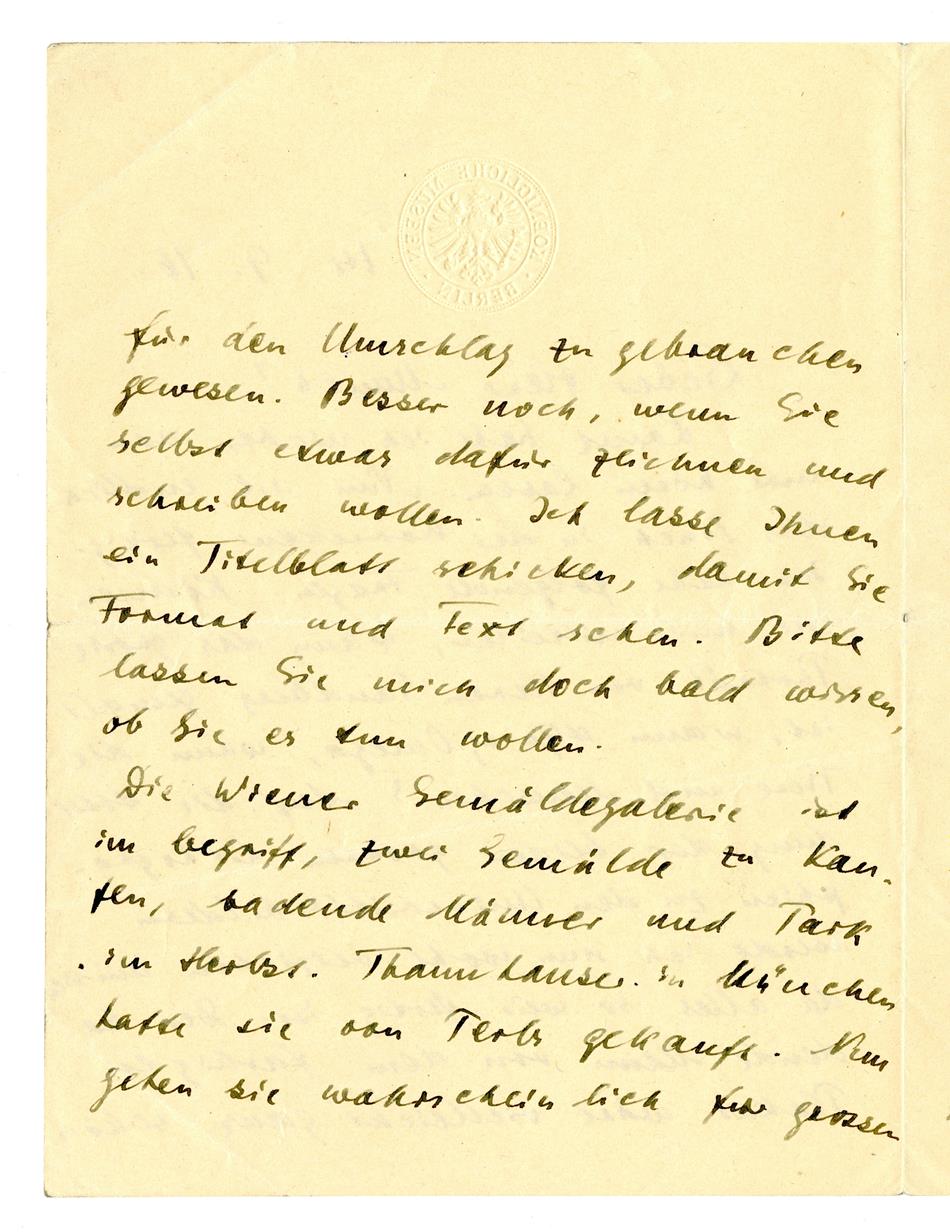 KOENIGLICHE MUSEEN · BERLIN ·
für den Umschlag zu gebrauchen
gewesen. Besser noch, wenn Sie
selbst etwas dafür zeichnen und
schreiben wollen. Ich lasse Ihnen
ein Titelblatt schicken, damit Sie
Format und Text sehen. Bitte
lassen Sie mich doch bald wissen,
ob Sie es tun wollen.
Die Wiener Gemäldegalerie ist
im begriff, zwei Gemälde zu Kau-
fen, badende Männer und Park
im Herbst. Thannhauser in München
hatte sie von Terbs gekauft. Nun
gehen sie wahrscheinlich für grossen